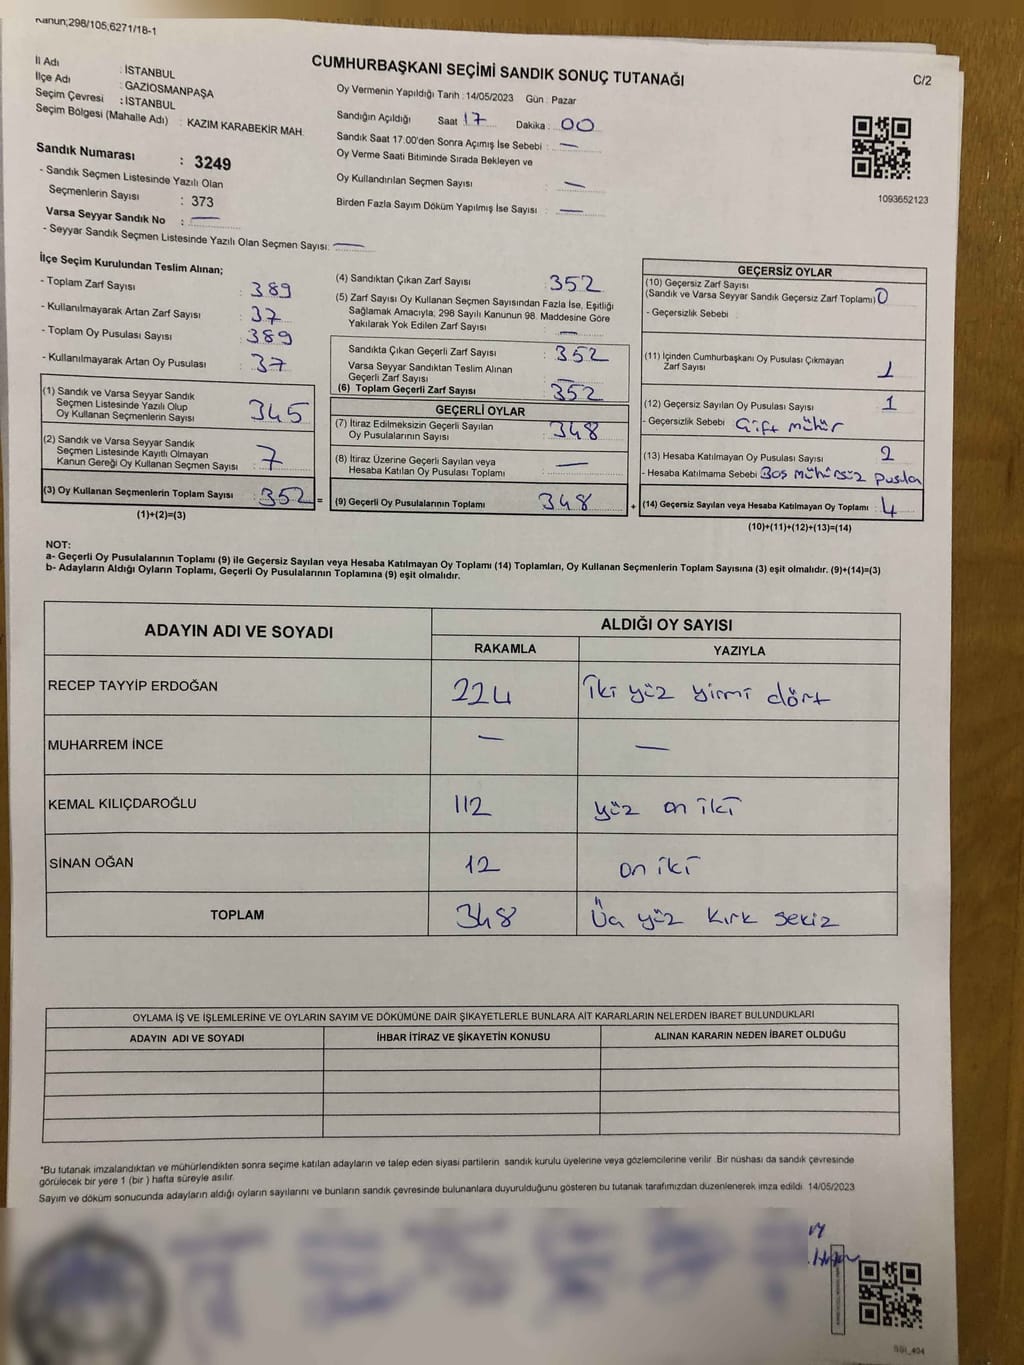 Kanun;298/105,6271/18-1
CUMHURBAŞKANI SEÇİMİ SANDIK SONUÇ TUTANAĞI
C/2
İl Adı : İSTANBUL
İlçe Adı : GAZİOSMANPAŞA
Seçim Çevresi : İSTANBUL
Seçim Bölgesi (Mahalle Adı) : KAZIM KARABEKİR MAH.
Sandık Numarası : 3249
- Sandık Seçmen Listesinde Yazılı Olan
Seçmenlerin Sayısı : 373
Varsa Seyyar Sandık No : —
- Seyyar Sandık Seçmen Listesinde Yazılı Olan Seçmen Sayısı: —
Oy Vermenin Yapıldığı Tarih : 14/05/2023 Gün : Pazar
Sandığın Açıldığı Saat 17 Dakika : 00
Sandık Saat 17.00'den Sonra Açımış İse Sebebi : —
Oy Verme Saati Bitiminde Sırada Bekleyen ve
Oy Kullandırılan Seçmen Sayısı : —
Birden Fazla Sayım Döküm Yapılmış İse Sayısı : —
1093652123
İlçe Seçim Kurulundan Teslim Alınan;
- Toplam Zarf Sayısı : 389
- Kullanılmayarak Artan Zarf Sayısı : 37
- Toplam Oy Pusulası Sayısı : 389
- Kullanılmayarak Artan Oy Pusulası : 37
(1) Sandık ve Varsa Seyyar Sandık
Seçmen Listesinde Yazılı Olup
Oy Kullanan Seçmenlerin Sayısı : 345
(2) Sandık ve Varsa Seyyar Sandık
Seçmen Listesinde Kayıtlı Olmayan
Kanun Gereği Oy Kullanan Seçmen Sayısı : 7
(3) Oy Kullanan Seçmenlerin Toplam Sayısı : 352 =
(1)+(2)=(3)
(4) Sandıktan Çıkan Zarf Sayısı : 352
(5) Zarf Sayısı Oy Kullanan Seçmen Sayısından Fazla İse, Eşitliği
Sağlamak Amacıyla, 298 Sayılı Kanunun 98. Maddesine Göre
Yakılarak Yok Edilen Zarf Sayısı : —
Sandıkta Çıkan Geçerli Zarf Sayısı : 352
Varsa Seyyar Sandıktan Teslim Alınan
Geçerli Zarf Sayısı : —
(6) Toplam Geçerli Zarf Sayısı : 352
GEÇERLİ OYLAR
(7) İtiraz Edilmeksizin Geçerli Sayılan
Oy Pusulalarının Sayısı : 348
(8) İtiraz Üzerine Geçerli Sayılan veya
Hesaba Katılan Oy Pusulası Toplamı : —
(9) Geçerli Oy Pusulalarının Toplamı : 348 +
GEÇERSİZ OYLAR
(10) Geçersiz Zarf Sayısı
(Sandık ve Varsa Seyyar Sandık Geçersiz Zarf Toplamı) 0
- Geçersizlik Sebebi :
(11) İçinden Cumhurbaşkanı Oy Pusulası Çıkmayan
Zarf Sayısı : 1
(12) Geçersiz Sayılan Oy Pusulası Sayısı : 1
- Geçersizlik Sebebi : Çift mühür
(13) Hesaba Katılmayan Oy Pusulası Sayısı : 2
- Hesaba Katılmama Sebebi Boş mühürsüz pusla
(14) Geçersiz Sayılan veya Hesaba Katılmayan Oy Toplamı : 4
(10)+(11)+(12)+(13)=(14)
NOT:
a- Geçerli Oy Pusulalarının Toplamı (9) ile Geçersiz Sayılan veya Hesaba Katılmayan Oy Toplamı (14) Toplamları, Oy Kullanan Seçmenlerin Toplam Sayısına (3) eşit olmalıdır. (9)+(14)=(3)
b- Adayların Aldığı Oyların Toplamı, Geçerli Oy Pusulalarının Toplamına (9) eşit olmalıdır.
ADAYIN ADI VE SOYADI
ALDIĞI OY SAYISI
RAKAMLA YAZIYLA
RECEP TAYYİP ERDOĞAN 224 İki yüz yirmi dört
MUHARREM İNCE — —
KEMAL KILIÇDAROĞLU 112 yüz on iki
SİNAN OĞAN 12 on iki
TOPLAM 348 Üç yüz kırk sekiz
OYLAMA İŞ VE İŞLEMLERİNE VE OYLARIN SAYIM VE DÖKÜMÜNE DAİR ŞİKAYETLERLE BUNLARA AİT KARARLARIN NELERDEN İBARET BULUNDUKLARI
ADAYIN ADI VE SOYADI İHBAR İTİRAZ VE ŞİKAYETİN KONUSU ALINAN KARARIN NEDEN İBARET OLDUĞU
*Bu tutanak imzalandıktan ve mühürlendikten sonra seçime katılan adayların ve talep eden siyasi partilerin sandık kurulu üyelerine veya gözlemcilerine verilir. Bir nüshası da sandık çevresinde
görülecek bir yere 1 (bir ) hafta süreyle asılır.
Sayım ve döküm sonucunda adayların aldığı oyların sayılarını ve bunların sandık çevresinde bulunanlara duyurulduğunu gösteren bu tutanak tarafımızdan düzenlenerek imza edildi. 14/05/2023